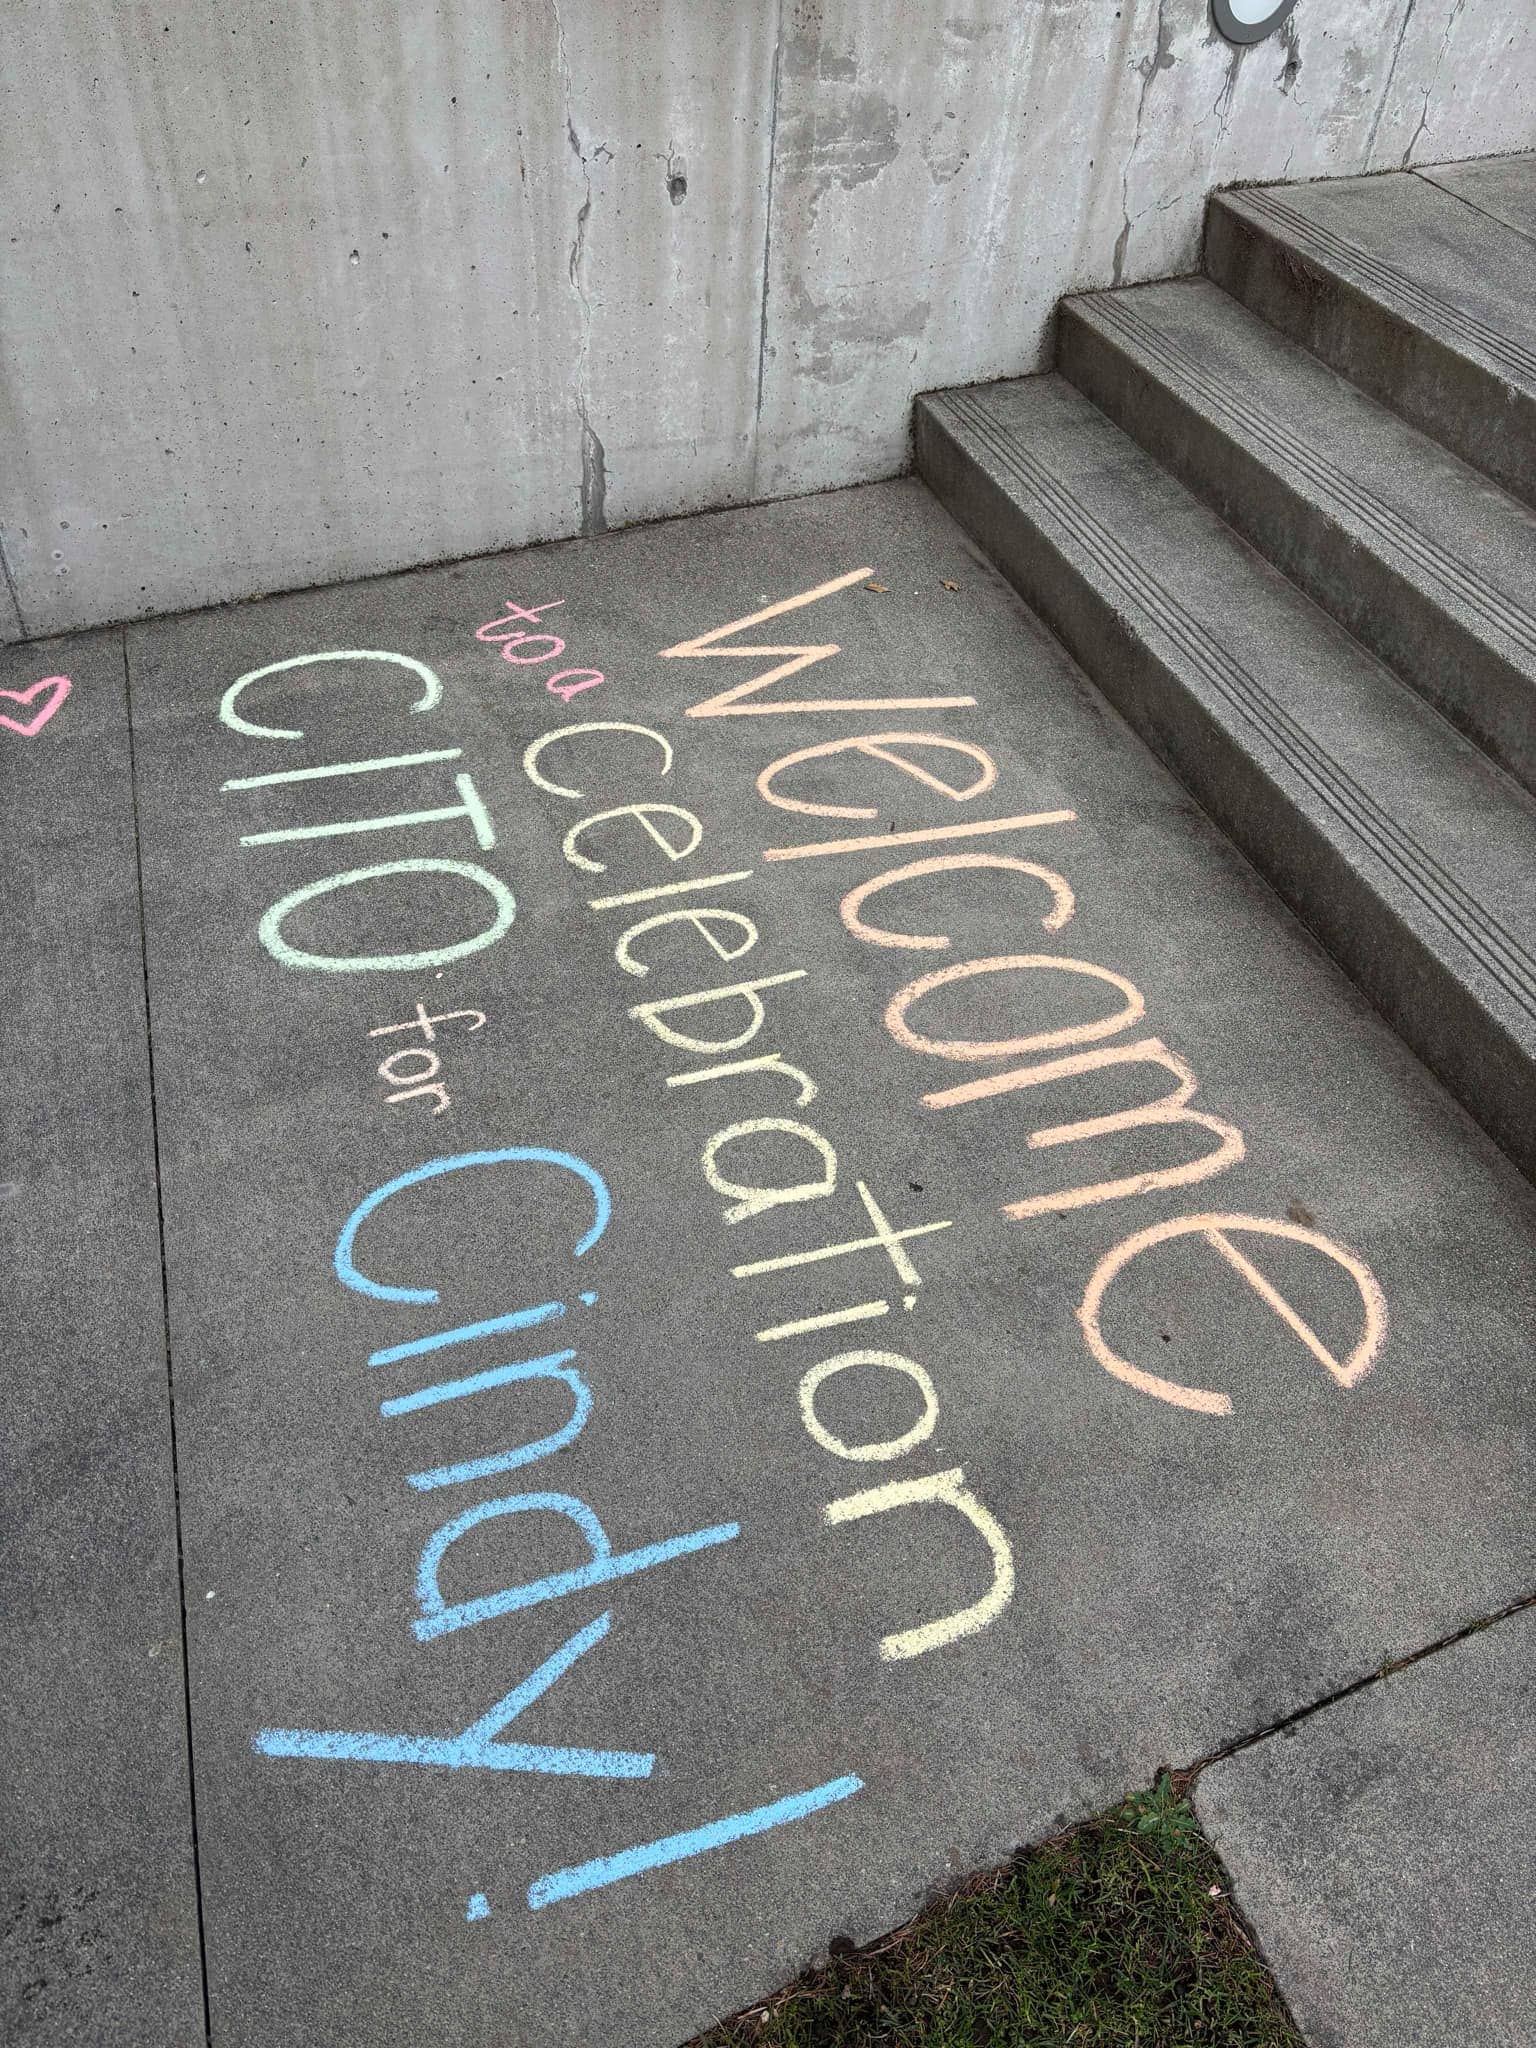 Welcome
to a celebration
CITO for Cindy!